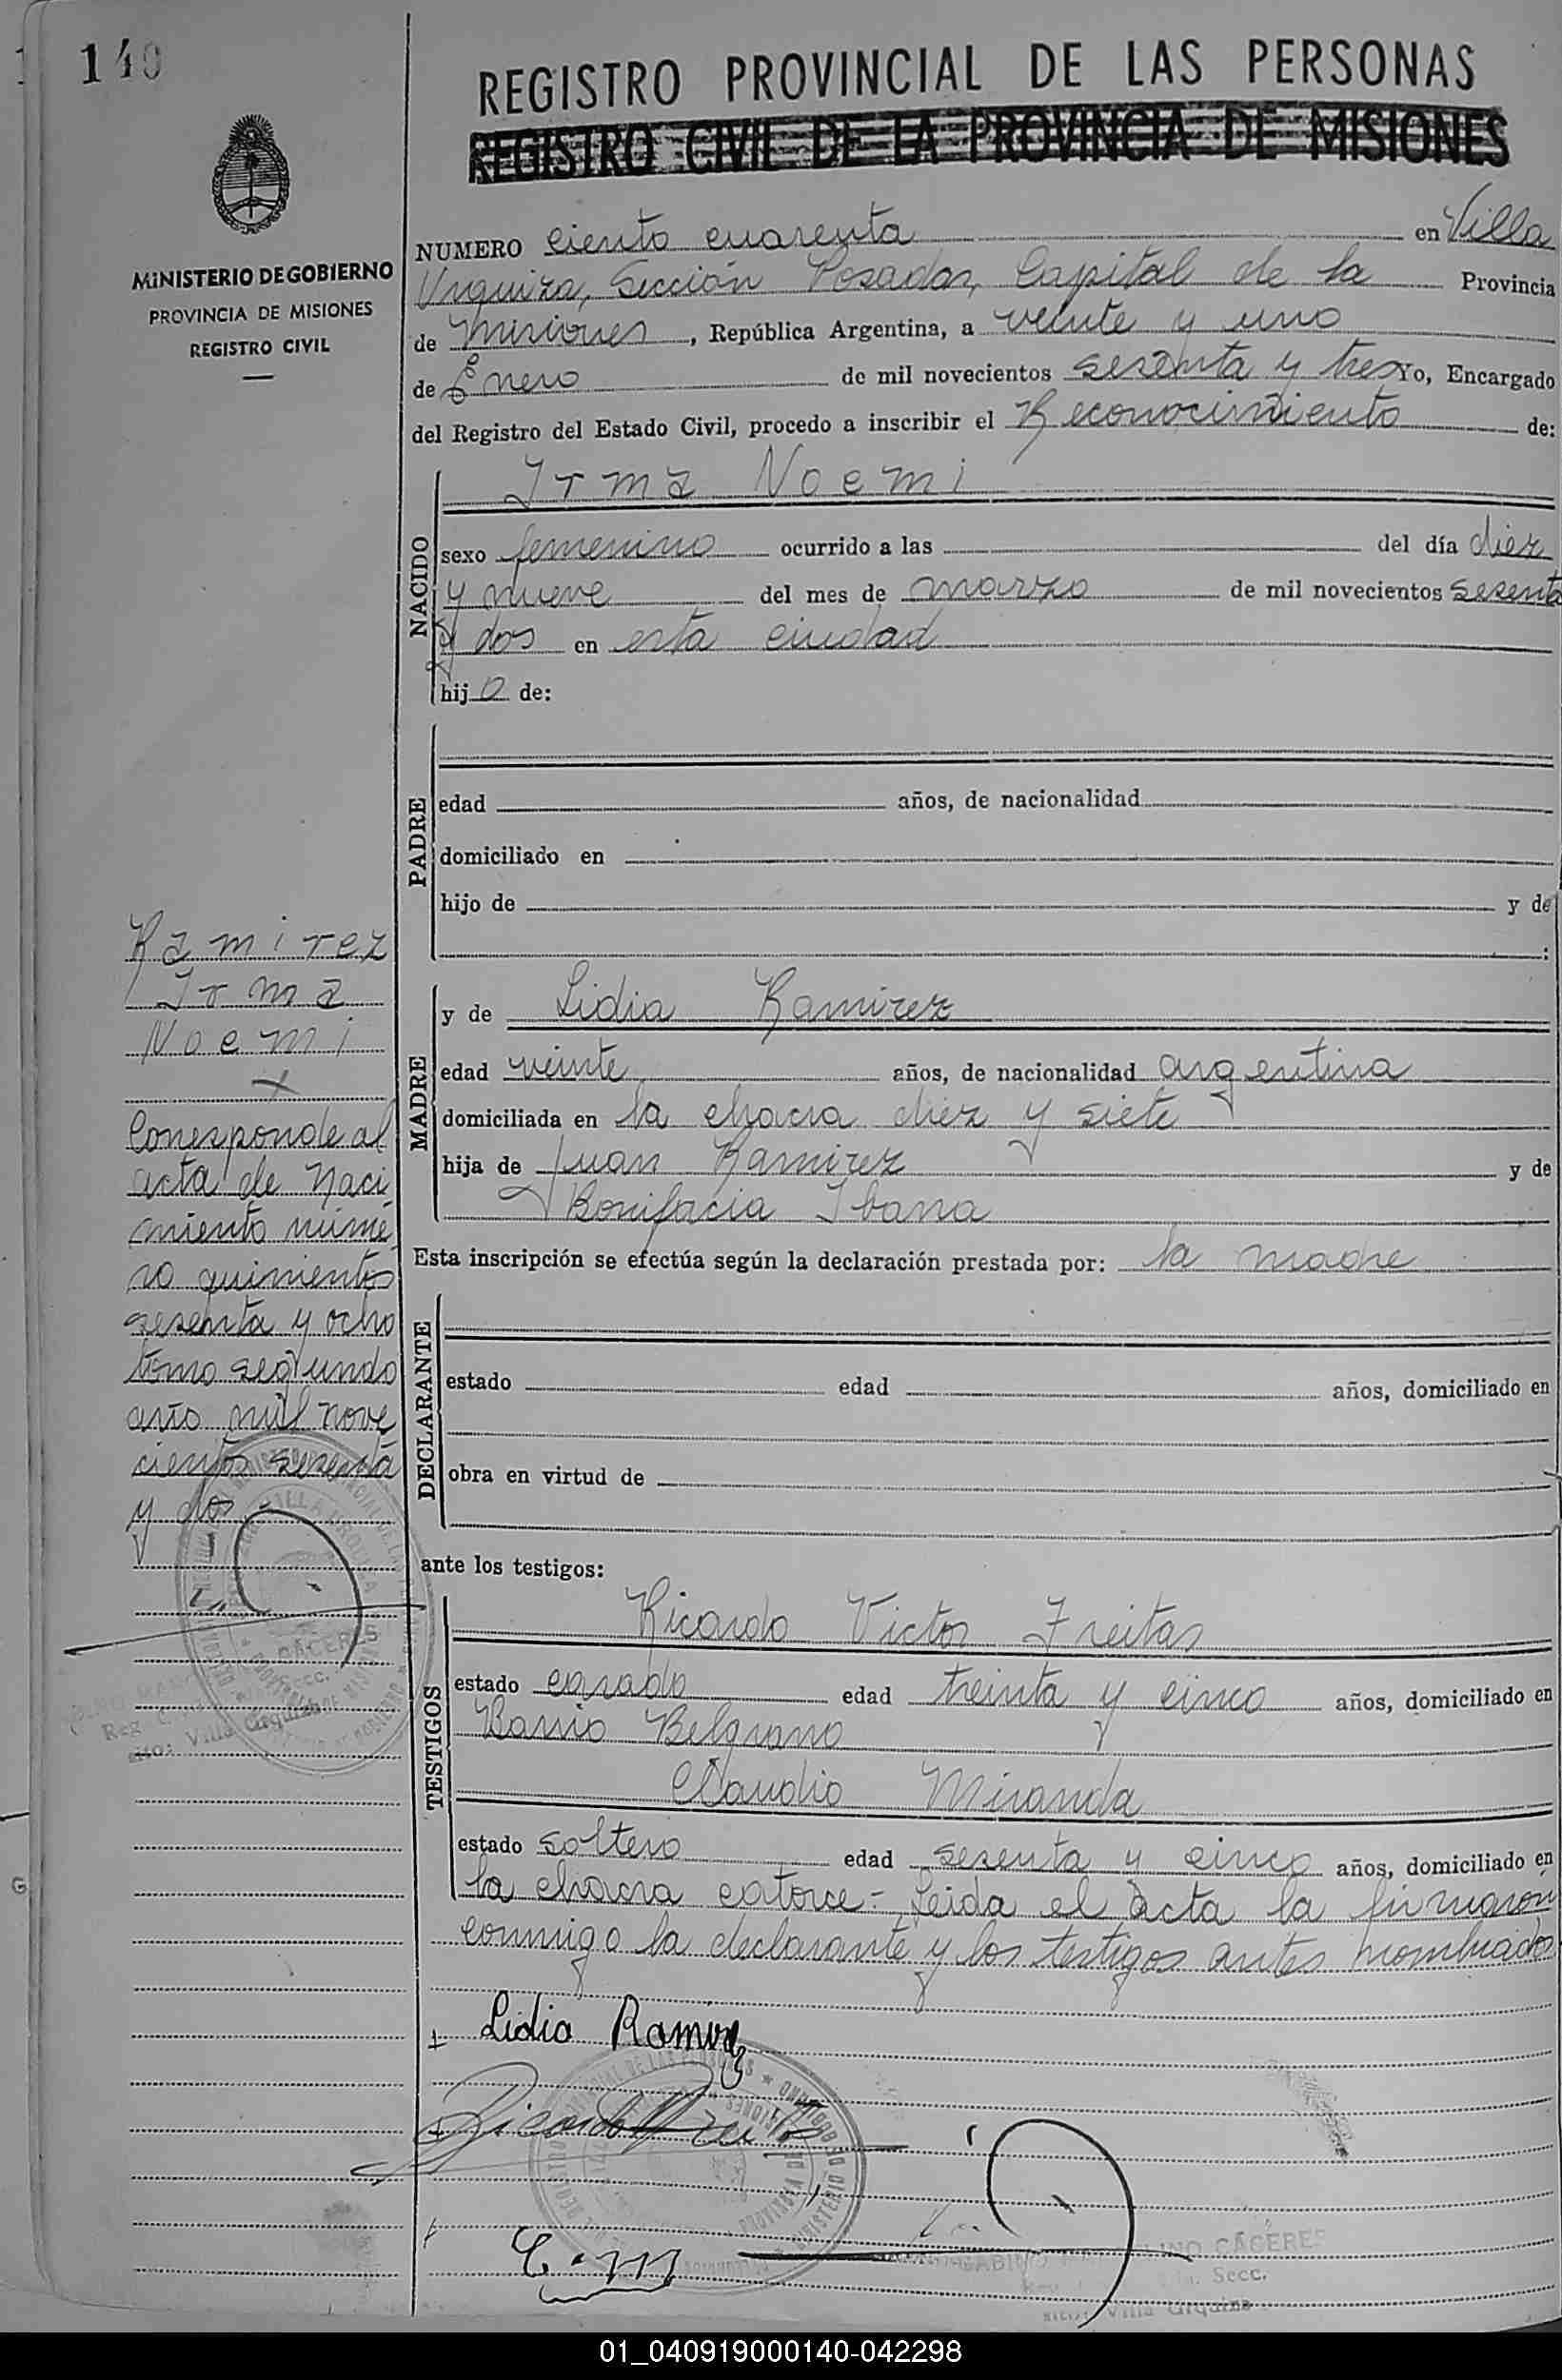 140
REGISTRO PROVINCIAL DE LAS PERSONAS
REGISTRO CIVIL DE LA PROVINCIA DE MISIONES
MINISTERIO DE GOBIERNO
PROVINCIA DE MISIONES
REGISTRO CIVIL
NUMERO ciento cuarenta en Villa
Urquiza, Sección Posadas, Capital de la Provincia
de Misiones, República Argentina, a veinte y uno
de Enero de mil novecientos sesenta y tres Yo, Encargado
del Registro del Estado Civil, procedo a inscribir el Reconocimiento de:
NACIDO
Irma Noemi
sexo femenino ocurrido a las del día diez
y nueve del mes de marzo de mil novecientos sesenta
y dos en esta ciudad
hij a de:
PADRE
edad años, de nacionalidad
domiciliado en
hijo de y de
:
MADRE
y de Lidia Ramirez
edad veinte años, de nacionalidad argentina
domiciliada en la chacra diez y siete
hija de Juan Ramirez y de
Bonifacia Ibana
Esta inscripción se efectúa según la declaración prestada por: la madre
DECLARANTE
estado edad años, domiciliado en
obra en virtud de
ante los testigos:
TESTIGOS
Ricardo Victor Freitas
estado casado edad treinta y cinco años, domiciliado en
Barrio Belgrano
Claudio Miranda
estado soltero edad sesenta y cinco años, domiciliado en
la chacra catorce - Leida el acta la firmaron
conmigo la declarante y los testigos antes nombrados
Lidia Ramirez
C. M
CÁCERES
Secc.
Villa Urquiza
Ramirez
Irma
Noemi
Corresponde al
acta de Naci
miento núme
ro quinientos
sesenta y ocho
tomo segundo
año mil nove
cientos sesenta
y dos
CÁCERES
Secc.
Villa Urquiza
01_040919000140-042298